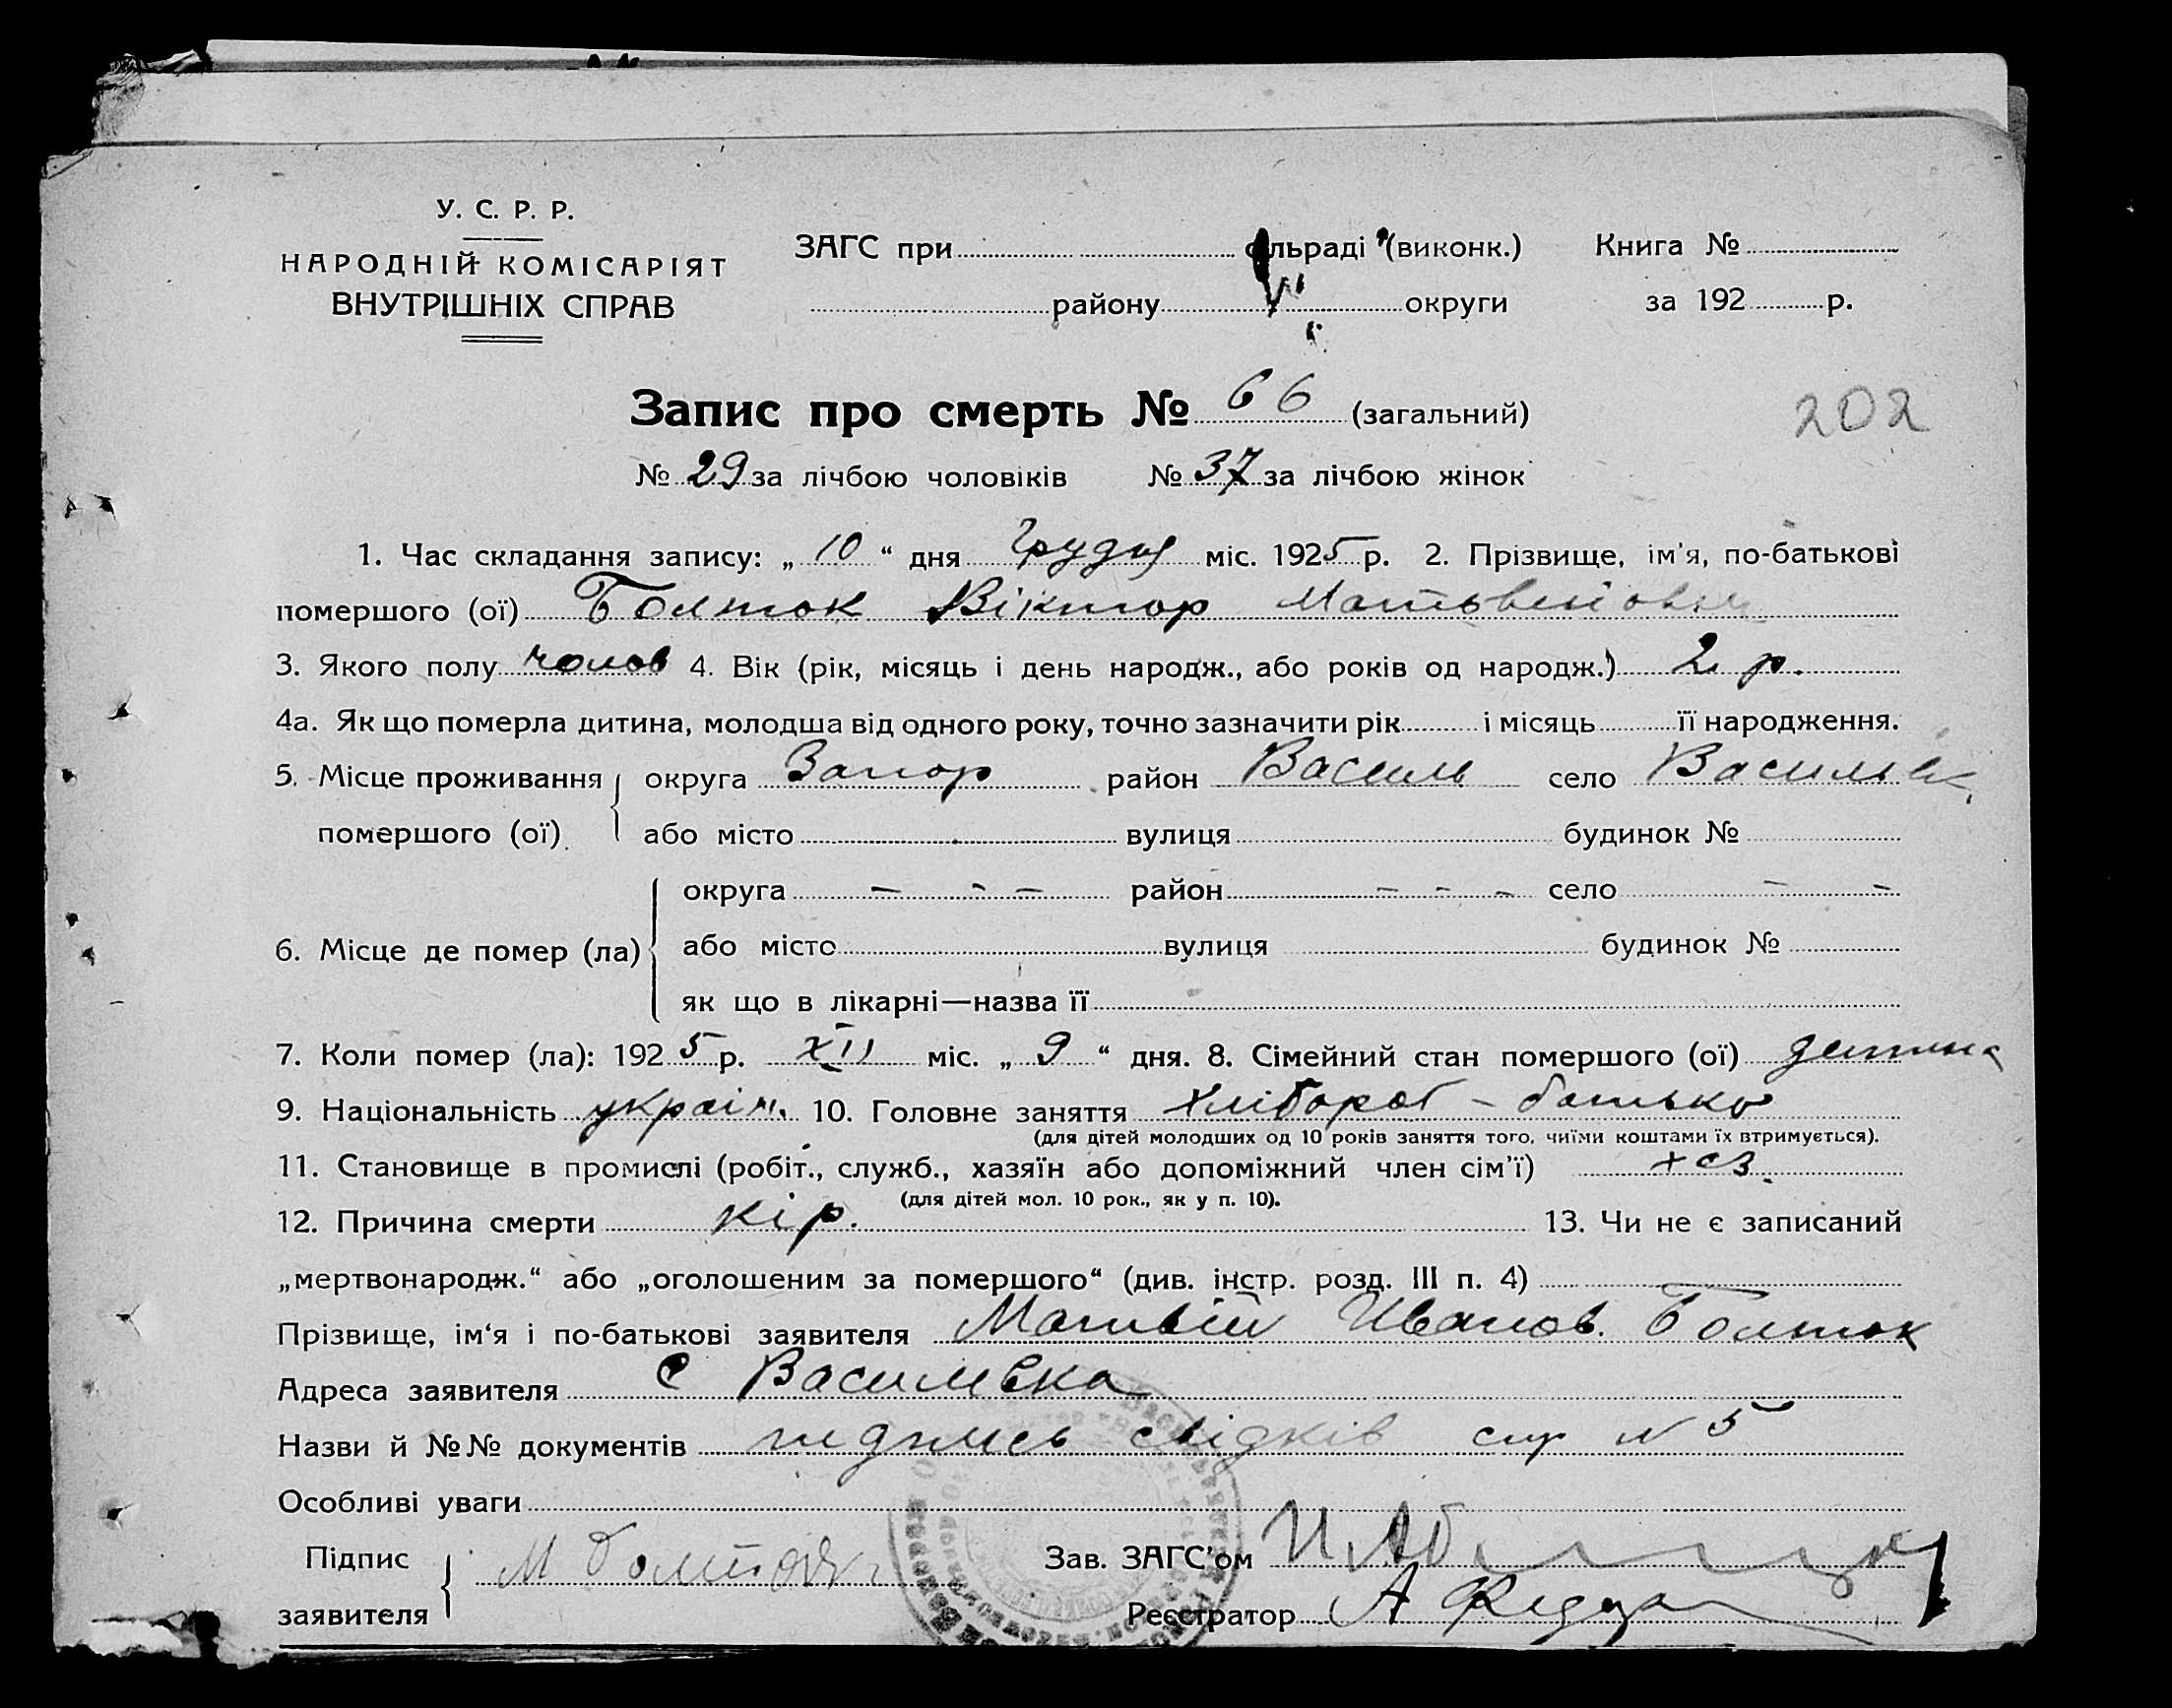 У. С. Р. Р.
НАРОДНІЙ КОМІСАРІЯТ
ВНУТРІШНІХ СПРАВ
ЗАГС при сільраді (виконк.) Книга №
району округи за 192 р.
Запис про смерть № 66 (загальний)
202
№ 29 за лічбою чоловіків № 37 за лічбою жінок
1. Час складання запису: „ 10 “ дня Грудня міс. 1925 р. 2. Прізвище, ім'я, по-батькові
помершого (ої) Болток Віктор Матьвейович
3. Якого полу чолов 4. Вік (рік, місяць і день народж., або років од народж.) 2 р.
4а. Як що померла дитина, молодша від одного року, точно зазначити рік і місяць її народження.
5. Місце проживання округа Запор район Василь село Васильев
помершого (ої) або місто вулиця будинок №
округа – – – район – – – село – –
6. Місце де помер (ла) або місто вулиця будинок №
як що в лікарні—назва її
7. Коли помер (ла): 1925 р. XII міс. „ 9 “ дня. 8. Сімейний стан помершого (ої) дитина
9. Національність україн. 10. Головне заняття хлібороб – батько
(для дітей молодших од 10 років заняття того, чиїми коштами їх втримується).
11. Становище в промислі (робіт., служб., хазяїн або допоміжний член сім'ї) хаз.
(для дітей мол. 10 рок., як у п. 10).
12. Причина смерти кір. 13. Чи не є записаний
„мертвонародж.“ або „оголошеним за помершого“ (див. інстр. розд. III п. 4)
Прізвище, ім'я і по-батькові заявителя Матвій Иванов. Болток
Адреса заявителя с Василевка
Назви й №№ документів підпись свідків стр N 5
Особливі уваги
Підпис М Болток Зав. ЗАГС'ом
заявителя Реєстратор А